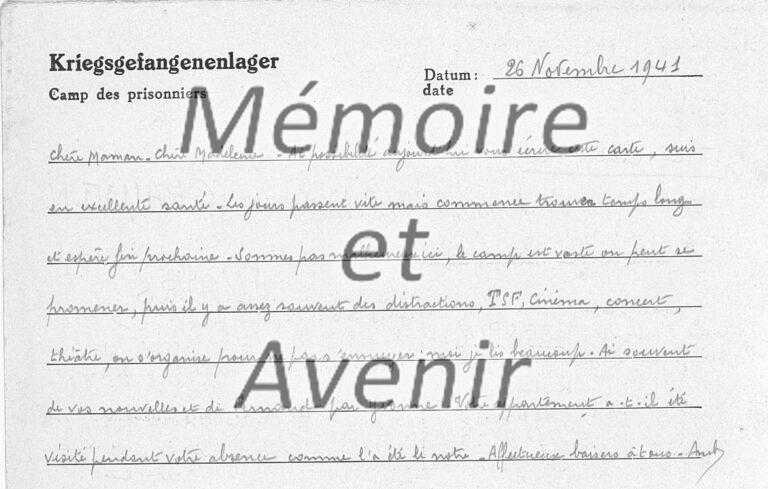 Kriegsgefangenenlager
Camp des prisonniers
Datum: 26 Novembre 1941
date
Mémoire
et
Avenir
Chère Maman - Chère Madeleine - Ai possibilité aujourd'hui vous écrire cette carte, suis
en excellente santé - Les jours passent vite mais commence trouver temps long
et espère fin prochaine - Sommes pas malheureux ici, le camp est vaste on peut se
promener, puis il y a assez souvent des distractions, TSF, Cinéma, concert,
théâtre, on s'organise pour ne pas s'ennuyer moi je lis beaucoup. Ai souvent
de vos nouvelles et de par Yvonne. Votre appartement a-t-il été
visité pendant votre absence comme l'a été le notre - Affectueux baisers à tous -